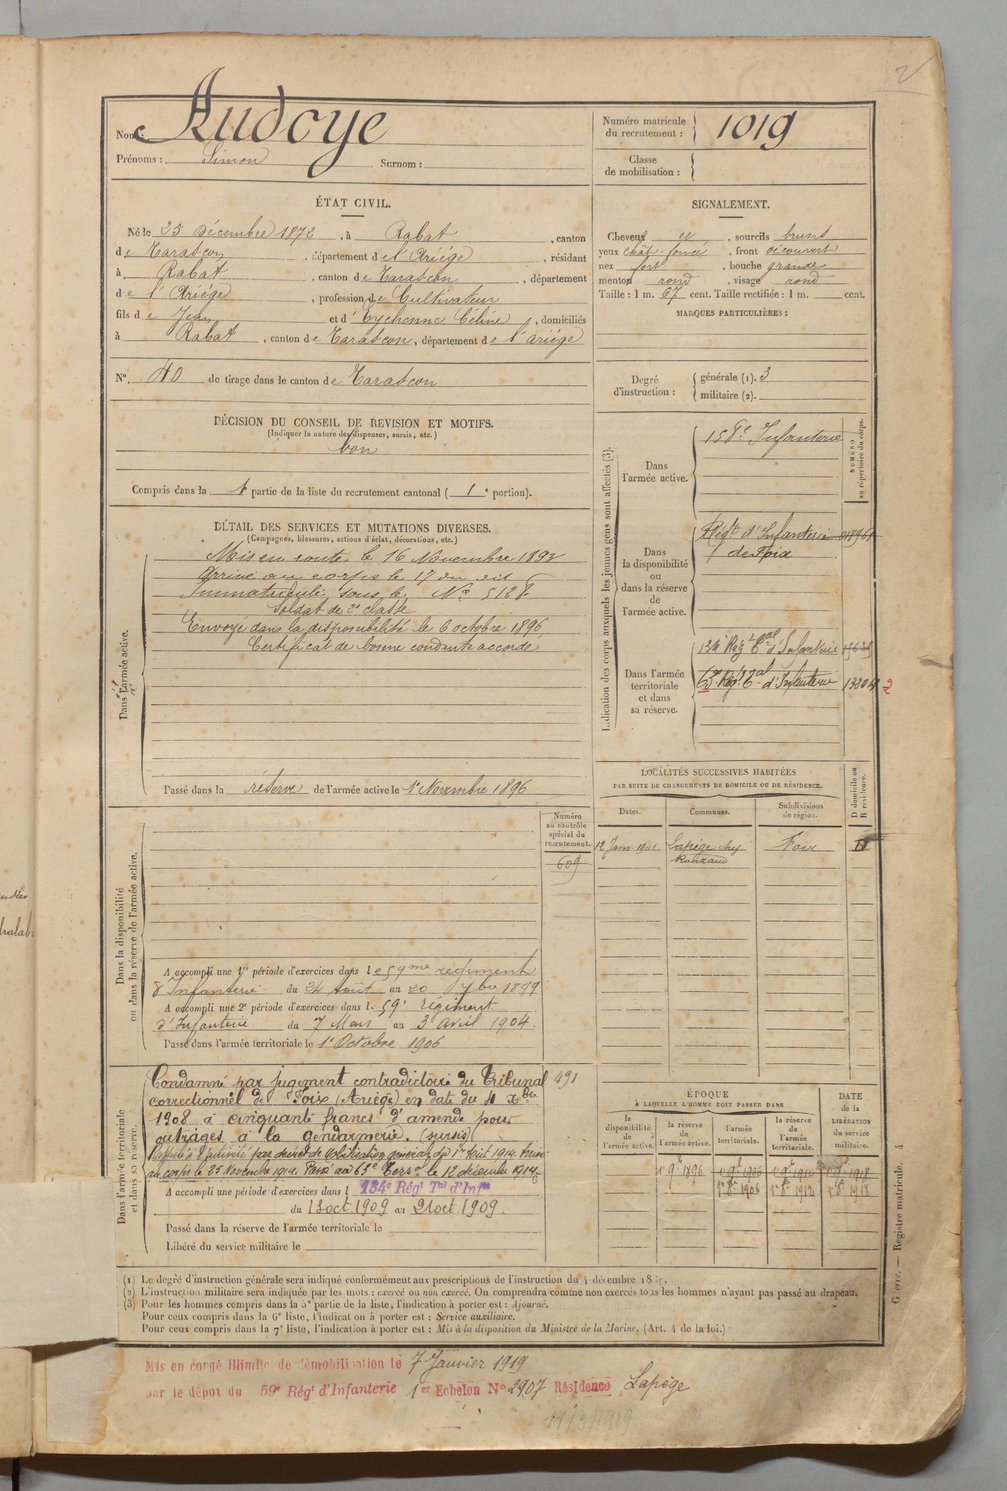 Nom : Audoye
Prénoms : Simon Surnom :
Numéro matricule du recrutement : 1019
Classe de mobilisation :
ÉTAT CIVIL.
Né le 25 Décembre 1872, à Rabat, canton
de Tarascon, département de l'Ariége, résidant
à Rabat, canton de Tarascon, département
de l'Ariége, profession de Cultivateur
fils de Jean et d'Eychenne Céline, domiciliés
à Rabat, canton de Tarascon, département de l'ariége
N°. 40 de tirage dans le canton de Tarascon
SIGNALEMENT.
Cheveux et, sourcils bruns
yeux chât. foncé, front découvert
nez fort, bouche grande
menton rond, visage rond
Taille : 1 m. 67 cent. Taille rectifiée : 1 m. cent.
MARQUES PARTICULIÈRES :
Degré d'instruction : générale (1). 3
militaire (2).
DÉCISION DU CONSEIL DE REVISION ET MOTIFS.
(Indiquer la nature des dispenses, sursis, etc.)
bon
Compris dans la 1e partie de la liste du recrutement cantonal ( 1e portion).
DÉTAIL DES SERVICES ET MUTATIONS DIVERSES.
(Campagnes, blessures, actions d'éclat, décorations, etc.)
Dans l'armée active.
Mis en route le 16 Novembre 1893
Arrivé au corps le 17 du dit
Immatriculé sous le No 5128
Soldat de 2e classe
Envoyé dans la disponibilité le 6 octobre 1896
Certificat de bonne conduite accordé
Passé dans la réserve de l'armée active le 1er Novembre 1896
Indication des corps auxquels les jeunes gens sont affectés (3).
NUMÉRO au répertoire du corps.
Dans l'armée active.
158e Infanterie
Dans la disponibilité ou dans la réserve de l'armée active.
Régt d'Infanterie
de Foix
Dans l'armée territoriale et dans sa réserve.
134e Régt Tal d'Infanterie
Régt Tal d'Infanterie
2
LOCALITÉS SUCCESSIVES HABITÉES
PAR SUITE DE CHANGEMENTS DE DOMICILE OU DE RÉSIDENCE.
Dates. Communes. Subdivisions de région. D domicile ou R résidence.
12 Janv. Lapège chez Foix
Dans la disponibilité ou dans la réserve de l'armée active.
Numéro au contrôle spécial du recrutement.
609
A accompli une 1re période d'exercices dans le 59me régiment
d'Infanterie du 24 Août au 20 7bre 1899
A accompli une 2e période d'exercices dans le 59e régiment
d'Infanterie du 7 Mars au 3 avril 1904.
Passé dans l'armée territoriale le 1er Octobre 1906
Dans l'armée territoriale et dans sa réserve.
Condamné par jugement contradictoire du Tribunal 491
correctionnel de Foix (Ariège) en date du 4 Xbre
1908 à cinquante francs d'amende pour
outrages à la gendarmerie. (sursis)
Rappelé à l'activité par décret de mobilisation générale du 1er Août 1914. Arrivé
au corps le 25 Novembre 1914. Passé au 63e Terr. le 12 décembre 1914
A accompli une période d'exercices dans l 134e Régt Tal d'Infie
du 13 oct. 1909 au 21 oct. 1909.
Passé dans la réserve de l'armée territoriale le
Libéré du service militaire le
ÉPOQUE
À LAQUELLE L'HOMME DOIT PASSER DANS
la disponibilité de l'armée active. la réserve de l'armée active. l'armée territoriale. la réserve de l'armée territoriale.
DATE de la LIBÉRATION du service militaire.
1er 9bre 1896 1er 9bre 1906 1er 9bre 1912 1er 9bre 1918
1er 8bre 1906 1er 8bre 1912 1er 8bre 1918
(1) Le degré d'instruction générale sera indiqué conformément aux prescriptions de l'instruction du 4 décembre
(2) L'instruction militaire sera indiquée par les mots : exercé ou non exercé. On comprendra comme non exercés tous les hommes n'ayant pas passé au drapeau.
(3) Pour les hommes compris dans la 5e partie de la liste, l'indication à porter est : Ajourné.
Pour ceux compris dans la 6e liste, l'indication à porter est : Service auxiliaire.
Pour ceux compris dans la 7e liste, l'indication à porter est : Mis à la disposition du Ministre de la Marine. (Art. 4 de la loi.)
Guerre. — Registre matricule. 4
Mis en congé illimité de démobilisation le 7 Janvier 1919
par le dépôt du 59e Régt d'Infanterie 1er Echelon No 2907 Résidence Lapège